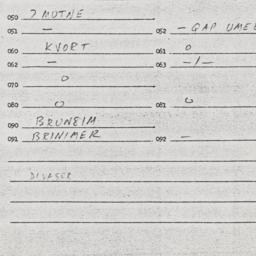 050 ? MUTNE
051 — 052 — GAP UMEE
060 KVORT 061 0
062 — 063 -/-
070 0
080 0 081 0
090 BRUNEIM
091 BRINIMER 092 —
DIVASER